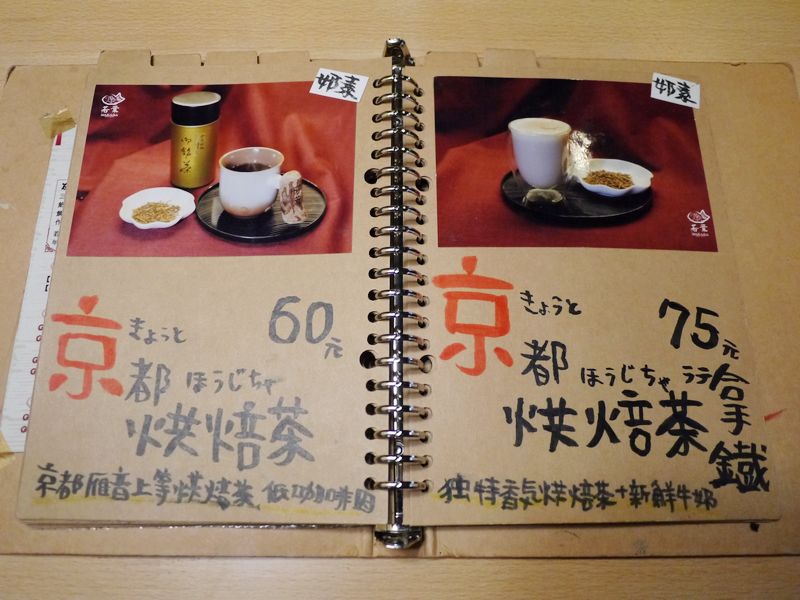 郷素
若葉
WAKABA
御銘茶
きょうと
60元
京都
ほうじちゃ
烘焙茶
京都雁音上等烘焙茶 低咖啡因
若葉
WAKABA
きょうと
75元
京都
ほうじちゃ ラテ
烘焙茶拿鐵
独特香気烘焙茶+新鮮牛奶